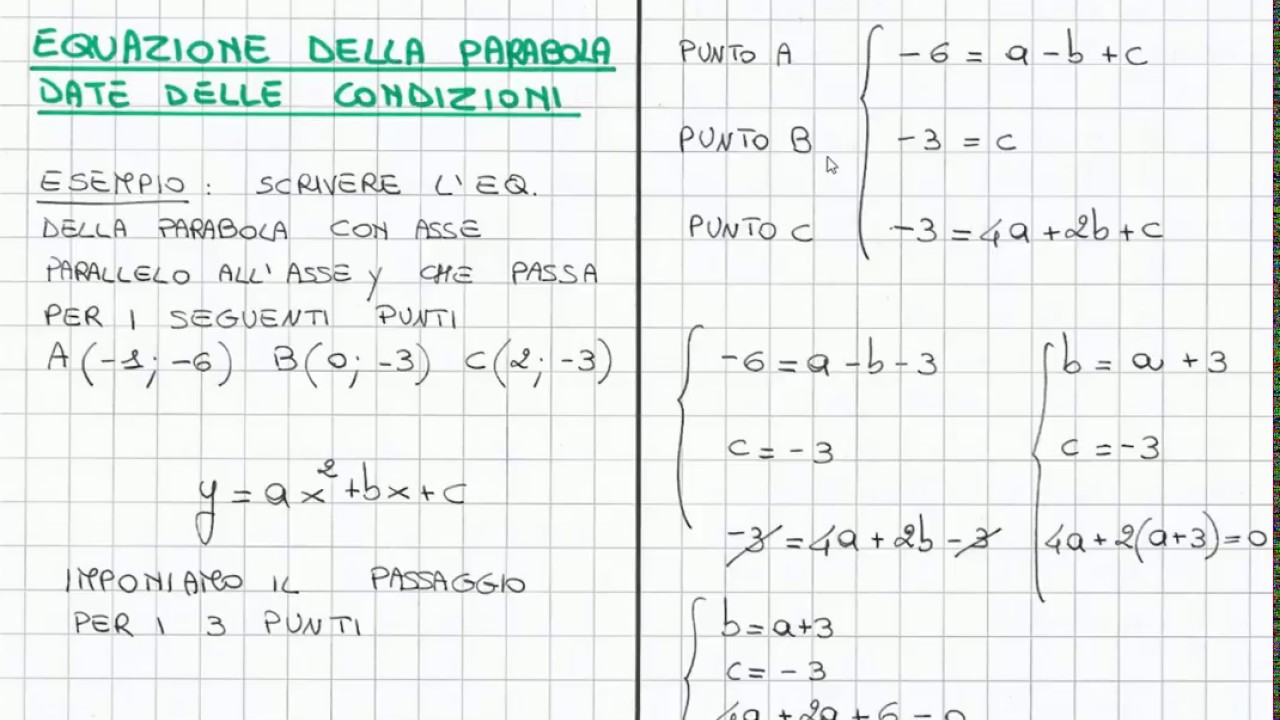 EQUAZIONE DELLA PARABOLA
DATE DELLE CONDIZIONI
ESEMPIO: SCRIVERE L'EQ.
DELLA PARABOLA CON ASSE
PARALLELO ALL'ASSE y CHE PASSA
PER I SEGUENTI PUNTI
A(-1; -6) B(0; -3) C(2; -3)
y = ax²+bx+c
IMPONIAMO IL PASSAGGIO
PER I 3 PUNTI
PUNTO A -6 = a-b+c
PUNTO B -3 = c
PUNTO C -3 = 4a+2b+c
-6 = a-b-3
c = -3
-3 = 4a+2b-3
b = a+3
c = -3
4a+2(a+3)=0
b = a+3
c = -3
4a+2a+6=0